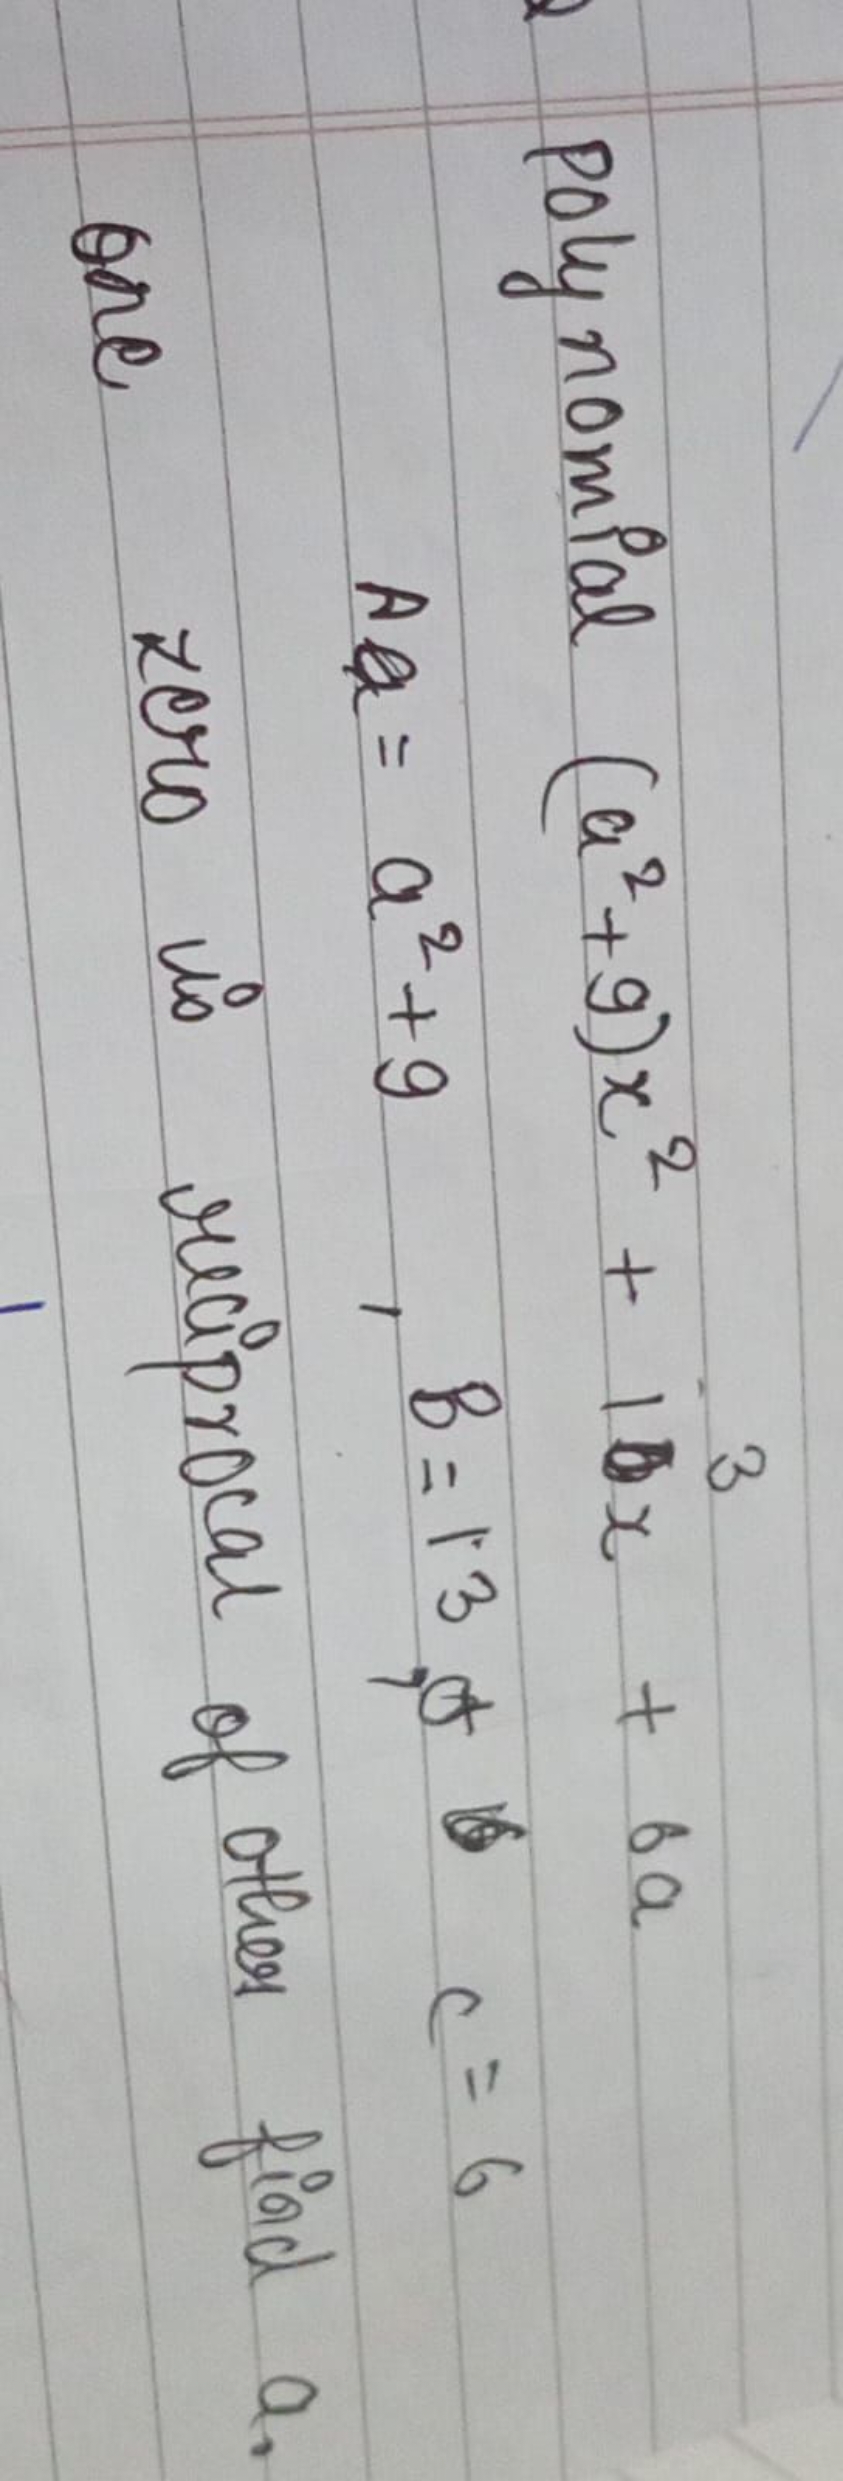 3
Polynomial (a²+9)x² + 1x + 6a
A = a²+9 , B = 13, C = 6
One zero is reciprocal of other find a.